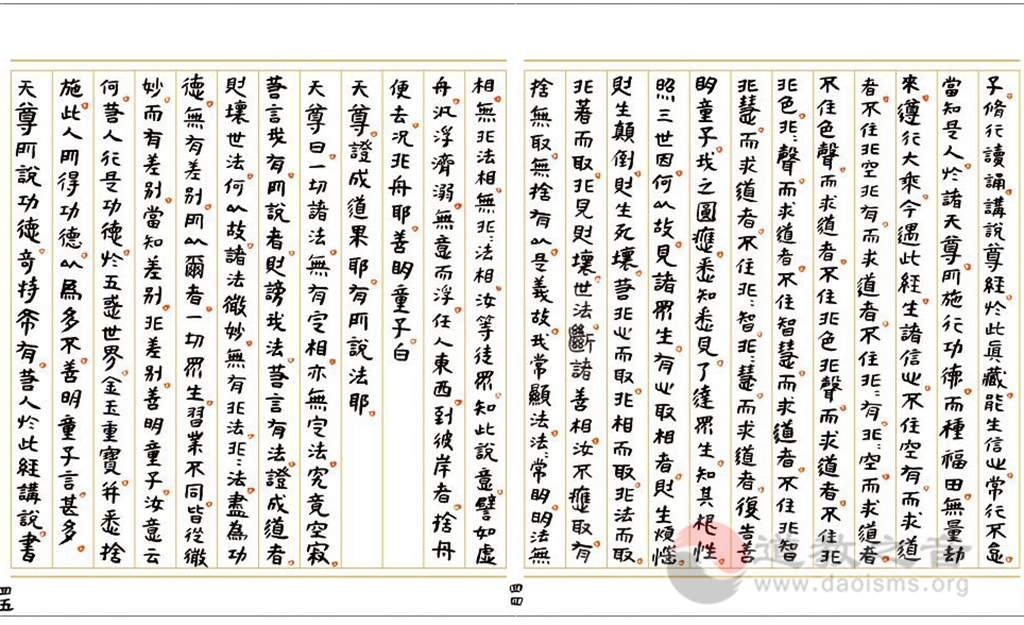 子脩行讀誦講說尊經於此真藏能生信心常行不怠
當知是人於諸天尊所施行功德而種福田無量劫
來遵行大乘今遇此經生諸信心不住空有而求道
者不住非空非有而求道者不住非：有非：空而求道者
不住色聲而求道者不住非色非聲而求道者不住非
非色非：聲而求道者不住智慧而求道者不住非智
非慧而求道者不住非：智非：慧而求道者復告善
明童子我之圓應悉知悉見了達眾生知其根性
照三世因何以故見諸眾生有心取相者則生煩惱
則生顛倒則生死壞若非心而取非相而取非法而取
非著而取非見則壞世法斷諸善相汝不應取有
捨無取無捨有以是義故我常顯法法：常明明法無
四四
相無非法相無非：法相汝等徒眾知此說意譬如虛
舟汎浮濟溺無意而浮任人東西到彼岸者捨舟
便去況非舟耶善明童子白
天尊證成道果耶有所說法耶
天尊曰一切諸法無有定相亦無定法究竟空寂
若言我有所說者則謗我法若言有法證成道者
則壞世法何以故諸法微妙無有非法非：法盡為功
德無有差別所以爾者一切眾生習業不同皆從微
妙而有差別當知差別非差別善明童子汝意云
何若人行是功德於五惑世界金玉重寶并悉捨
施此人所得功德以為多不善明童子言甚多
天尊所說功德奇特希有若人於此經講說書
四五
道教之音
www.daoisms.org